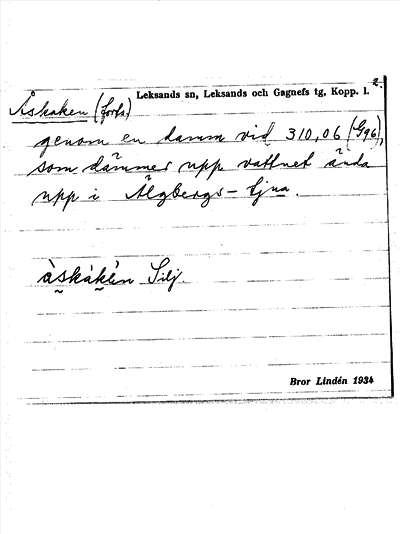 2.
Åskaken (forts) Leksands sn, Leksands och Gagnefs tg, Kopp. l.
genom en damm vid 310,06 (Gg6),
som dämmer upp vattnet ända
upp i Älgbergs-tjna.
åskàkèn Silj.
Bror Lindén 1934